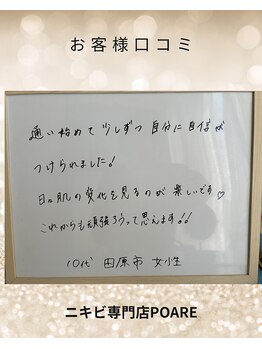 お客様口コミ
通い始めて少しずつ自分に自信が
つけられました!
日々肌の変化を見るのが楽しいです♡
これからも頑張ろうって思えます!!
10代 田原市 女性
ニキビ専門店POARE